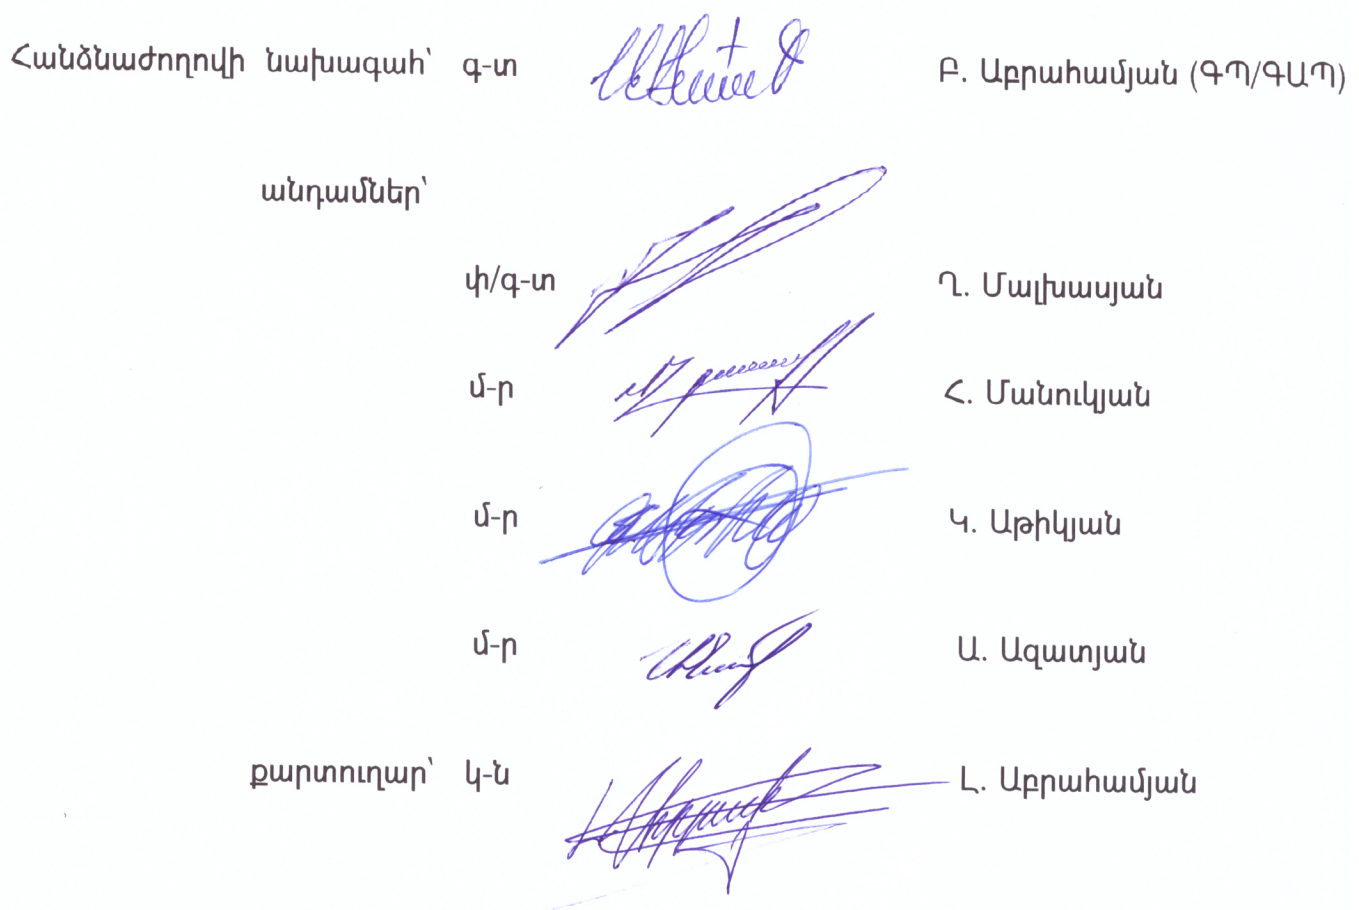 Հանձնաժողովի նախագահ՝ գ-տ Բ. Աբրահամյան (ԳՊ/ԳԱՊ)
անդամներ՝
փ/գ-տ Ղ. Մալխասյան
մ-ր Հ. Մանուկյան
մ-ր Կ. Աթիկյան
մ-ր Ա. Ազատյան
քարտուղար՝ կ-ն Լ. Աբրահամյան